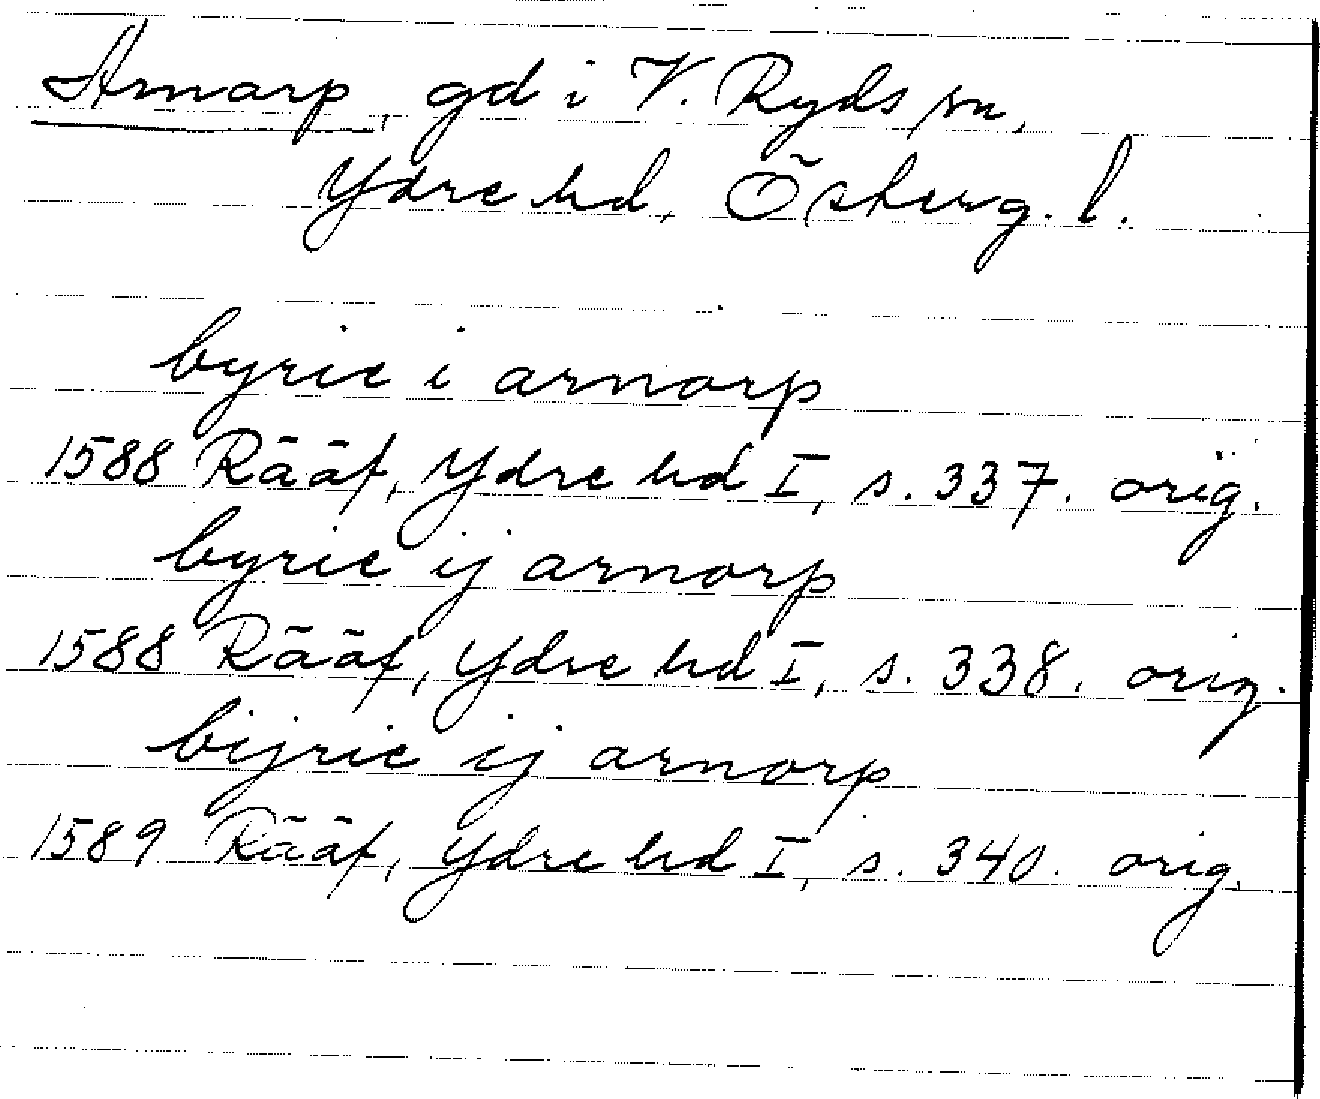 Arnarp, gd i V. Ryds sn,
Ydre hd, Österg. l.
byrie i arnorp
1588 Rääf, Ydre hd I, s. 337. orig.
byrie ij arnorp
1588 Rääf, Ydre hd I, s. 338. orig.
bijrie ij arnorp
1589 Rääf, Ydre hd I, s. 340. orig.